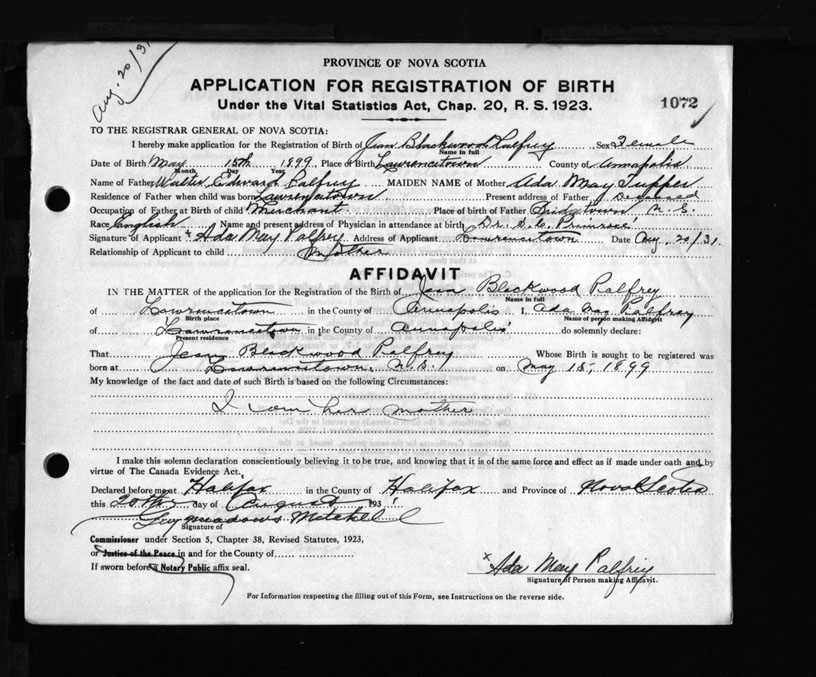 Aug. 20/31
PROVINCE OF NOVA SCOTIA
APPLICATION FOR REGISTRATION OF BIRTH
Under the Vital Statistics Act, Chap. 20, R. S. 1923.
1072
TO THE REGISTRAR GENERAL OF NOVA SCOTIA:
I hereby make application for the Registration of Birth of Jean Blackwood Palfrey Sex Female
Name in full
Date of Birth May 15th 1899 Place of Birth Lawrencetown County of Annapolis
Month Day Year
Name of Father Walter Edward Palfrey MAIDEN NAME of Mother Ada May Tupper
Residence of Father when child was born Lawrencetown Present address of Father Deceased
Occupation of Father at Birth of child Merchant Place of birth of Father Bridgetown N.S.
Race English Name and present address of Physician in attendance at birth Dr. Primrose
Signature of Applicant x Ada May Palfrey Address of Applicant Lawrencetown Date Aug. 20/31
Relationship of Applicant to child Mother
AFFIDAVIT
IN THE MATTER of the application for the Registration of the Birth of Jean Blackwood Palfrey
Name in full
of Lawrencetown in the County of Annapolis I, Ada May Palfrey
Birth place Name of person making Affidavit
of Lawrencetown in the County of Annapolis do solemnly declare:
Present residence
That Jean Blackwood Palfrey Whose Birth is sought to be registered was
born at Lawrencetown, N.S. on May 15, 1899
My knowledge of the fact and date of such Birth is based on the following Circumstances:
I am her mother
I make this solemn declaration conscientiously believing it to be true, and knowing that it is of the same force and effect as if made under oath and by
virtue of The Canada Evidence Act.
Declared before me at Halifax in the County of Halifax and Province of Nova Scotia
this 20th day of August 1931
Guy Meadows Mitchell
Signature of
Commissioner under Section 5, Chapter 38, Revised Statutes, 1923,
or Justice of the Peace in and for the County of
If sworn before a Notary Public affix seal.
x Ada May Palfrey
Signature of Person making Affidavit.
For Information respecting the filling out of this Form, see Instructions on the reverse side.